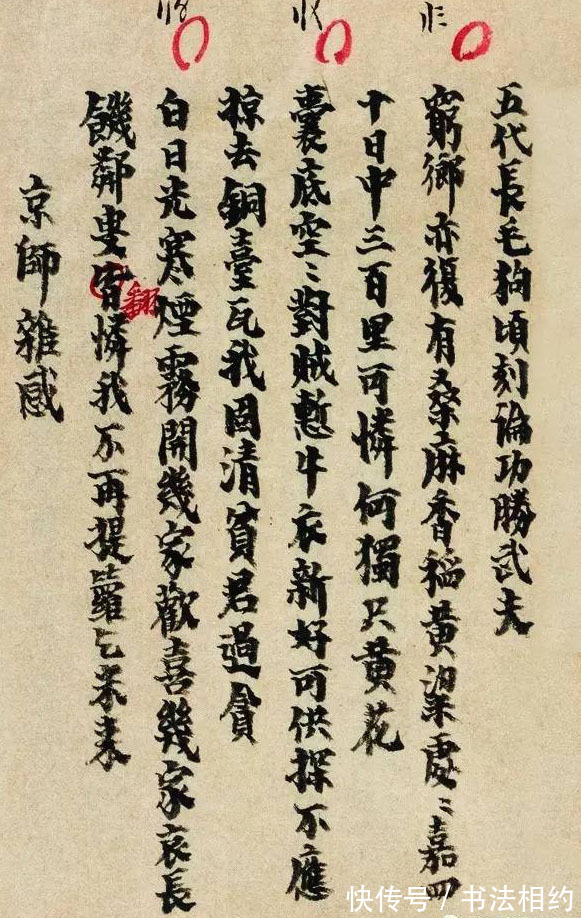 五代長毛狗頃刻論功勝武夫
窮鄉亦復有桑麻香稻黃粱處〻嘉四
十日中三百里可憐何獨只黃花
囊底空〻對賊慙牛衣新好可供探不應
掠去銅臺瓦我固清貧君過貪
白日光寒煙霧開幾家歡喜幾家哀長
饑鄰叟皆憐我不再提籮乞米來
翻
京師雜感
快传号/书法相约